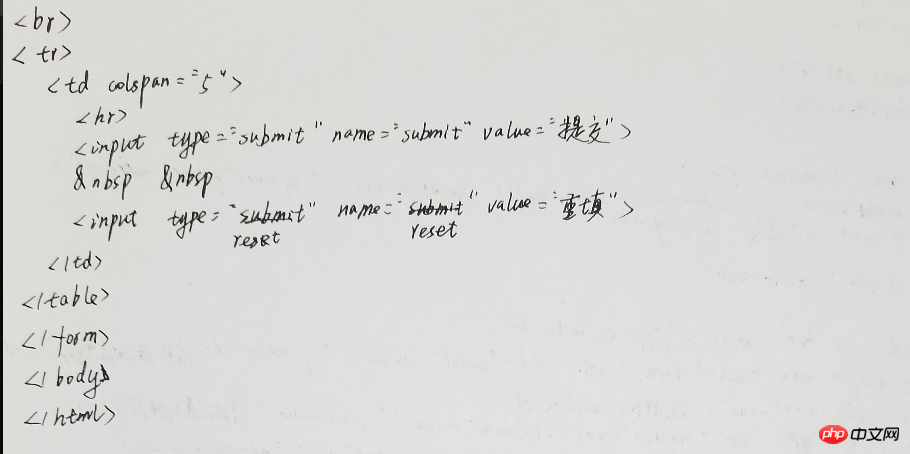 <br>
<tr>
<td colspan="5">
<hr>
<input type="submit" name="submit" value="提交">
&nbsp &nbsp
<input type="submit" name="submit" value="重填">
reset reset
</td>
</table>
</form>
</body>
</html>
php 中文网